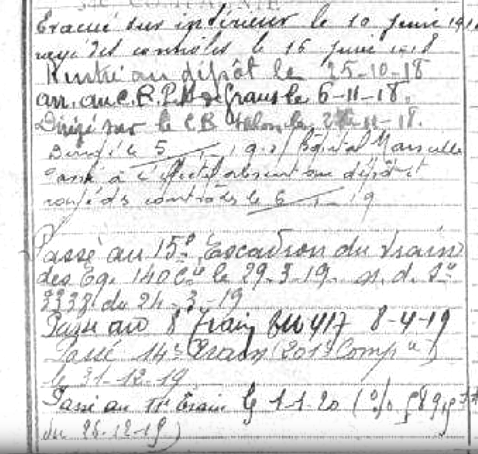 Evacué sur intérieur le 10 Juin 191
rayé des controles le 16 Juin 1918
Rentré au dépôt le 25-10-18
arr. au C.R.P. de Grans le 6-11-18.
Dirigé sur le C.R. Salon le 2 -11-18.
Dirigé le 5 Marseille
Passé à l'effectif absent au dépôt et
rayé des contrôles le 6 19
Passé au 15e Escadron du train
des Eq. 140 Cie le 29-3-19. n. d. So
3338 du 24-3-19
Passé au 8 Train 417 8-4-19
Passé 14e Train (201e Comp ie)
le 31-12-19
Passé au Train le 1-1-20 (
du 26-12-19)